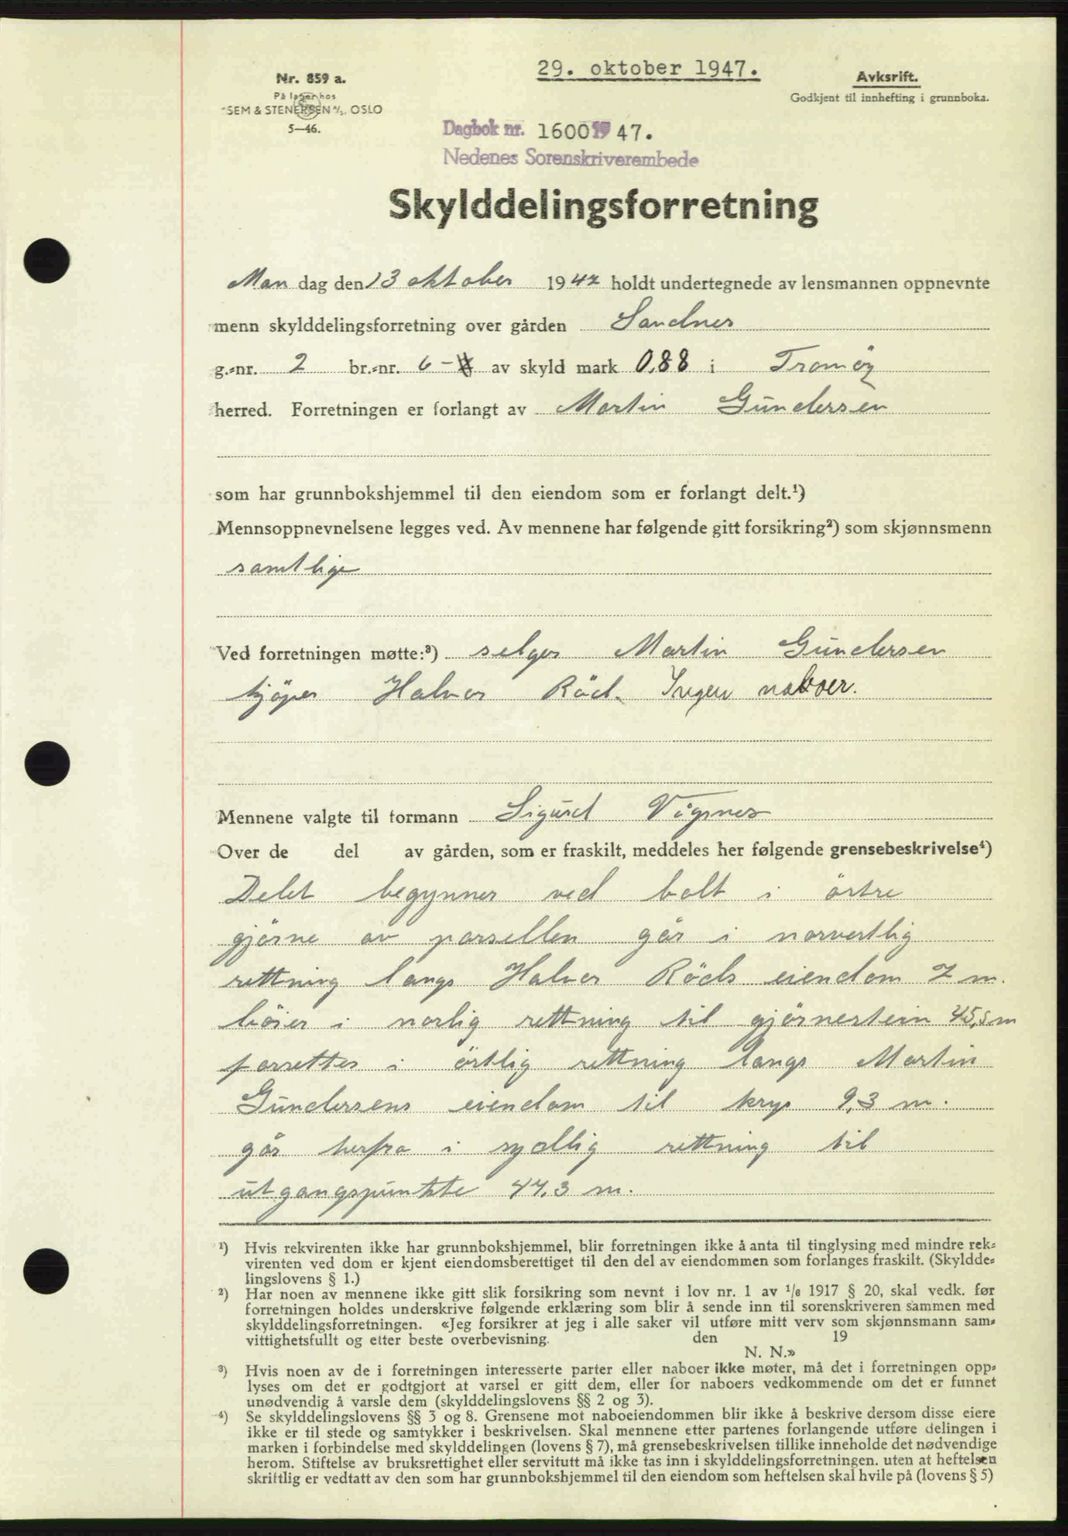 29. oktober 1947.
Nr. 859 a.
På lager hos
SEM & STENERSEN A/S, OSLO
5—46.
Avskrift.
Godkjent til innhefting i grunnboka.
Dagbok nr. 1600 1947.
Nedenes Sorenskriverembede
Skylddelingsforretning
Man dag den 13 oktober 1947 holdt undertegnede av lensmannen oppnevnte
menn skylddelingsforretning over gården Sandnes
g.-nr. 2 br.-nr. 6 - av skyld mark 0,88 i Tromöy
herred. Forretningen er forlangt av Martin Gundersen
som har grunnbokshjemmel til den eiendom som er forlangt delt.¹)
Mennsoppnevnelsene legges ved. Av mennene har følgende gitt forsikring²) som skjønnsmenn
samtlige
Ved forretningen møtte:³) selger Martin Gundersen
kjöper Halvor Röed. Ingen naboer.
Mennene valgte til formann Sigurd Vågsnes
Over de del av gården, som er fraskilt, meddeles her følgende grensebeskrivelse⁴)
Delet begynner ved bolt i östre
gjörne av parsellen går i norvestlig
rettning langs Halvor Röeds eiendom 7 m.
böier i norlig rettning til gjörnestein 45,5 m
forsetter i östlig rettning langs Martin
Gundersens eiendom til kryp 9,3 m.
går herfra i sydlig rettning til
utgangspunkte 47,3 m.
¹) Hvis rekvirenten ikke har grunnbokshjemmel, blir forretningen ikke å anta til tinglysing med mindre rek-
virenten ved dom er kjent eiendomsberettiget til den del av eiendommen som forlanges fraskilt. (Skyldde-
lingslovens § 1.)
²) Har noen av mennene ikke gitt slik forsikring som nevnt i lov nr. 1 av 1/6 1917 § 20, skal vedk. før
forretningen holdes underskrive følgende erklæring som blir å sende inn til sorenskriveren sammen med
skylddelingsforretningen. «Jeg forsikrer at jeg i alle saker vil utføre mitt verv som skjønnsmann sam-
vittighetsfullt og etter beste overbevisning. den 19
N. N.»
³) Hvis noen av de i forretningen interesserte parter eller naboer ikke møter, må det i forretningen opp-
lyses om det er godtgjort at varsel er gitt dem, eller for naboers vedkommende om det er funnet
unødvendig å varsle dem (skylddelingslovens §§ 2 og 3).
⁴) Se skylddelingslovens §§ 3 og 8. Grensene mot naboeiendommen blir ikke å beskrive dersom disse eiere
ikke er til stede og samtykker i beskrivelsen. Skal mennene etter partenes forlangende utføre delingen i
marken i forbindelse med skylddelingen (lovens § 7), må grensebeskrivelsen tillike inneholde det nødvendige
herom. Stiftelse av bruksrettighet eller servitutt må ikke tas inn i skylddelingsforretningen, uten at heftelsen
skriftlig er vedtatt av den som har grunnbokshjemmel til den eiendom som heftelsen skal hvile på (lovens § 5)